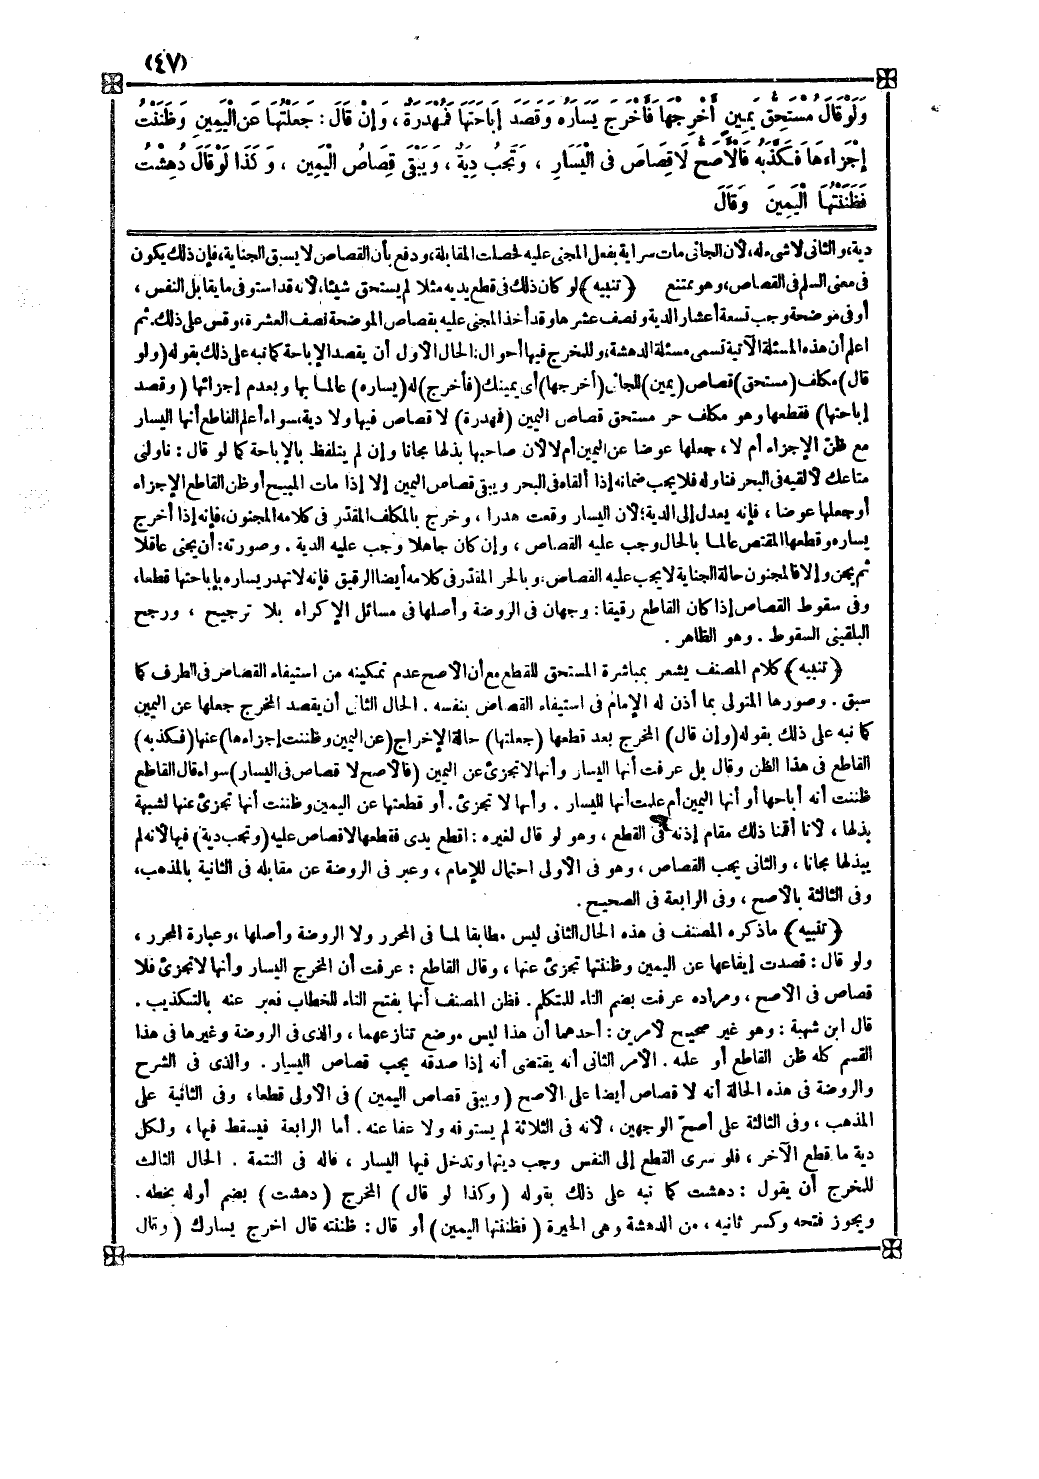 (٤٧)
وَلَوْ قَالَ مُسْتَحِقُّ يَمِينٍ أَخْرِجْهَا فَأَخْرَجَ يَسَارَهُ وَقَصَدَ إِبَاحَتَهَا فَمُهْدَرَةٌ ، وَإِنْ قَالَ : جَعَلْتُهَا عَنِ الْيَمِينِ وَظَنَنْتُ
إِجْزَاءَهَا فَكَذَّبَهُ فَالْأَصَحُّ لَا قِصَاصَ فِى الْيَسَارِ ، وَتَجِبُ دِيَةٌ ، وَيَبْقَى قِصَاصُ الْيَمِينِ ، وَكَذَا لَوْ قَالَ دُهِشْتُ
فَظَنَنْتُهَا الْيَمِينَ وَقَالَ
دية، والثانى لا شىء له، لأن الجانى مات سراية بفعل المجنى عليه فحصلت المقابلة، ودفع بأن القصاص لا يسبق الجناية، فإن ذلك يكون
فى معنى السلم فى القصاص، وهو ممتنع ﴿ تنبيه ﴾ لو كان ذلك فى قطع يديه مثلا لم يستحق شيئا، لأنه قد استوفى ما يقابل النفس ،
أو فى موضحة وجب تسعة أعشار الدية ونصف عشرها وقد أخذ المجنى عليه بقصاص الموضحة نصف العشرة، وقس على ذلك. ثم
اعلم أن هذه المسئلة الآتية تسمى مسئلة الدهشة، وللمخرج فيها أحوال: الحال الأول أن يقصد الإباحة كما نبه على ذلك بقوله (ولو
قال) مكلف (مستحق) قصاص (يمين) للجانى (أخرجها) أى يمينك (فأخرج) له (يساره) عالما بها وبعدم إجزائها ( وقصد
إباحتها) فقطعها وهو مكلف حر مستحق قصاص اليمين (فمهدرة) لا قصاص فيها ولا دية، سواء أعلم القاطع أنها اليسار
مع ظن الإجزاء أم لا ، جعلها عوضا عن اليمين أم لا لأن صاحبها بذلها مجانا وإن لم يتلفظ بالإباحة كما لو قال : ناولنى
متاعك لألقيه فى البحر فناوله فلا يجب ضمانه إذا ألقاه فى البحر ويبقى قصاص اليمين إلا إذا مات المبيح أو ظن القاطع الإجزاء
أو جعلها عوضا ، فإنه يعدل إلى الدية؛ لأن اليسار وقعت هدرا ، وخرج بالمكلف المقدّر فى كلامه المجنون، فإنه إذا أخرج
يساره وقطعها المقتص عالما بالحال وجب عليه القصاص ، وإن كان جاهلا وجب عليه الدية . وصورته: أن يجنى عاقلا
ثم يجن وإلا فالمجنون حالة الجناية لا يجب عليه القصاص، وبالحر المقدّر فى كلامه أيضا الرقيق فإنه لا تهدر يساره بإباحتها قطعا،
وفى سقوط القصاص إذا كان القاطع رقيقا : وجهان فى الروضة وأصلها فى مسائل الإكراه بلا ترجيح ، ورجح
البلقينى السقوط . وهو الظاهر .
﴿ تنبيه ﴾ كلام المصنف يشعر بمباشرة المستحق للقطع مع أن الأصح عدم تمكينه من استيفاء القصاص فى الطرف كما
سبق . وصورها المتولى بما أذن له الإمام فى استيفاء القصاص بنفسه . الحال الثانى أن يقصد المخرج جعلها عن اليمين
كما نبه على ذلك بقوله (وإن قال) المخرج بعد قطعها (جعلتها) حالة الإخراج (عن اليمين وظننت إجزاءها) عنها (فكذبه)
القاطع فى هذا الظن وقال بل عرفت أنها اليسار وأنها لا تجزئ عن اليمين (فالأصح لا قصاص فى اليسار) سواء قال القاطع
ظننت أنه أباحها أو أنها اليمين أم علمت أنها اليسار . وأنها لا تجزئ. أو قطعتها عن اليمين وظننت أنها تجزئ عنها لشبهة
بذلها ، لأنا أقمنا ذلك مقام إذنه فى القطع ، وهو لو قال لغيره : اقطع يدى فقطعها لا قصاص عليه (وتجب دية) فيها لأنه لم
يبذلها مجانا ، والثانى يجب القصاص ، وهو فى الأولى احتمال للإمام ، وعبر فى الروضة عن مقابله فى الثانية بالمذهب،
وفى الثالثة بالأصح ، وفى الرابعة فى الصحيح .
﴿ تنبيه ﴾ ما ذكره المصنف فى هذه الحال الثانى ليس مطابقا لما فى المحرر ولا الروضة وأصلها ، وعبارة المحرر ،
ولو قال : قصدت إيقاعها عن اليمين وظننتها تجزئ عنها ، وقال القاطع : عرفت أن المخرج اليسار وأنها لا تجزئ فلا
قصاص فى الأصح ، ومراده عرفت بضم التاء للمتكلم. فظن المصنف أنها بفتح التاء للخطاب فعبر عنه بالتكذيب .
قال ابن شهبة : وهو غير صحيح لأمرين : أحدهما أن هذا ليس موضع تنازعهما ، والذى فى الروضة وغيرها فى هذا
القسم كله ظن القاطع أو علمه . الأمر الثانى أنه يقتضى أنه إذا صدقه يجب قصاص اليسار . والذى فى الشرح
والروضة فى هذه الحالة أنه لا قصاص أيضا على الأصح ( ويبقى قصاص اليمين ) فى الأولى قطعا، وفى الثانية على
المذهب ، وفى الثالثة على أصحّ الوجهين ، لأنه فى الثلاثة لم يستوفه ولا عفا عنه. أما الرابعة فيسقط فيها ، ولكل
دية ما قطع الآخر ، فلو سرى القطع إلى النفس وجب ديتها وتدخل فيها اليسار ، قاله فى التتمة . الحال الثالث
للمخرج أن يقول : دهشت كما نبه على ذلك بقوله ( وكذا لو قال ) المخرج ( دهشت ) بضم أوله بخطه .
ويجوز فتحه وكسر ثانيه ، من الدهشة وهى الحيرة ( فظننتها اليمين ) أو قال : ظننته قال اخرج يسارك ( وقال